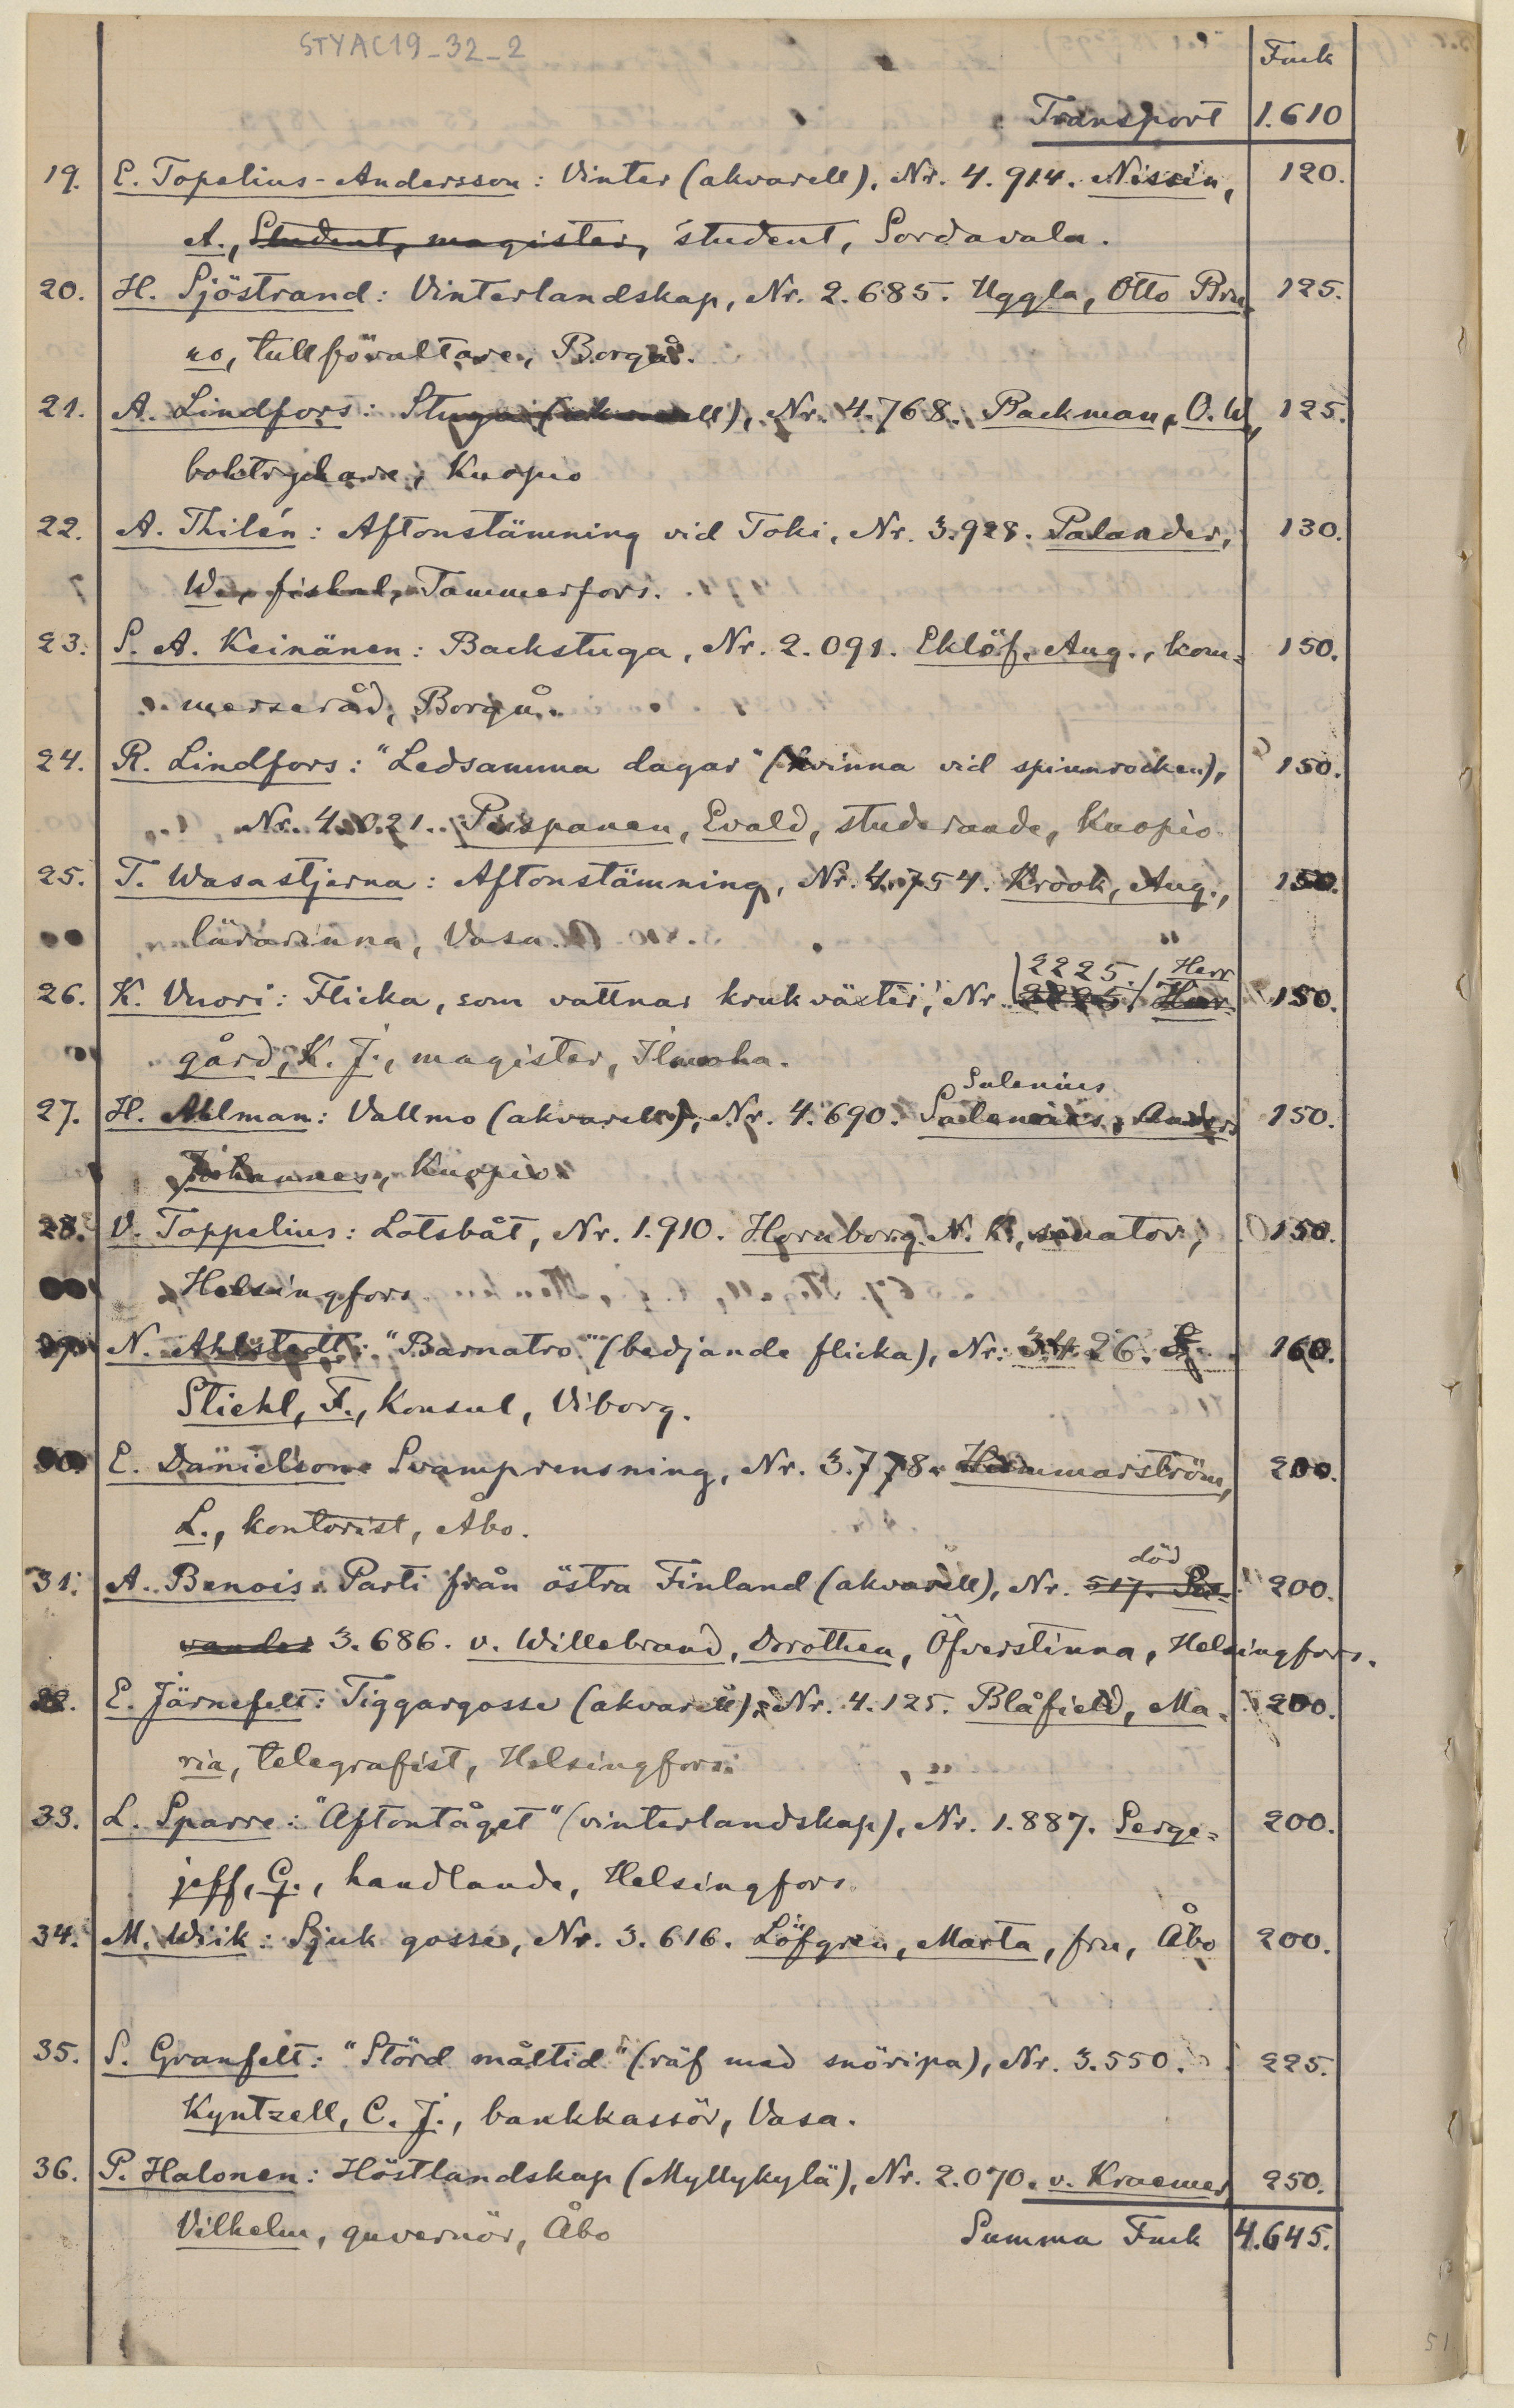 STYAC19_32_2
Fmk
Transport 1.610
19. E. Topelius-Andersson: Vinter (akvarell), Nr. 4.914. Nissin, 120.
A., Student, magister, student, Sordavala.
20. H. Sjöstrand: Vinterlandskap, Nr. 2.685. Uggla, Otto Bru- 125.
no, tullförvaltare, Borgå.
21. A. Lindfors: Stuga (akvarell), Nr. 4.768. Backman, O.W, 125.
boktryckare, Kuopio
22. A. Thilén: Aftonstämning vid Toki, Nr. 3.928. Palander, 130.
W., fiskal, Tammerfors.
23. S. A. Keinänen: Backstuga, Nr. 2.091. Eklöf, Aug., kom= 150.
merseråd, Borgå.
24. R. Lindfors: "Ledsamma dagar" (kvinna vid spinnrocken), 150.
Nr. 4.021. Peispanen, Evald, studerande, Kuopio
25. T. Wasastjerna: Aftonstämning, Nr. 4.754. Krook, Aug., 150.
lärarinna, Vasa.
2225. Herr
26. K. Vuori: Flicka, som vattnar krukväxter, Nr. 2225. Herr= 150.
gård, K. J., magister, Ilmoha.
Salenius
27. H. Ahlman: Vallmo (akvarell), Nr. 4.690. Salenius, Anders 150.
Johannes, Kuopio
28. V. Toppelius: Lotsbåt, Nr. 1.910. Hornborg N. K., senator, 150.
Helsingfors
29. N. Ahlstedt: "Barnatro" (bedjande flicka), Nr. 3.426. 160.
Stiehl, F., Konsul, Viborg.
30. E. Danielson: Svamprensning, Nr. 3.778. Hammarström, 200.
L., kontorist, Åbo.
död
31. A. Benois: Parti från östra Finland (akvarell), Nr. 517. 200.
3.686. v. Willebrand, Dorothea, Öfverstinna, Helsingfors.
32. E. Järnefelt: Tiggargosse (akvarell), Nr. 4.125. Blåfield, Ma- 200.
ria, telegrafist, Helsingfors.
33. L. Sparre: "Aftontåget" (vinterlandskap), Nr. 1.887. Serge= 200.
jeff, G., handlande, Helsingfors
34. M. Wiik: Sjuk gosse, Nr. 3.616. Löfgren, Marta, fru, Åbo 200.
35. S. Granfelt: "Störd måltid" (räf med snöripa), Nr. 3.550. 225.
Kyntzell, C. J., bankkassör, Vasa.
36. P. Halonen: Höstlandskap (Myllykylä), Nr. 2.070. v. Kraemer 250.
Vilhelm, guvernör, Åbo Summa Fmk 4.645.
51